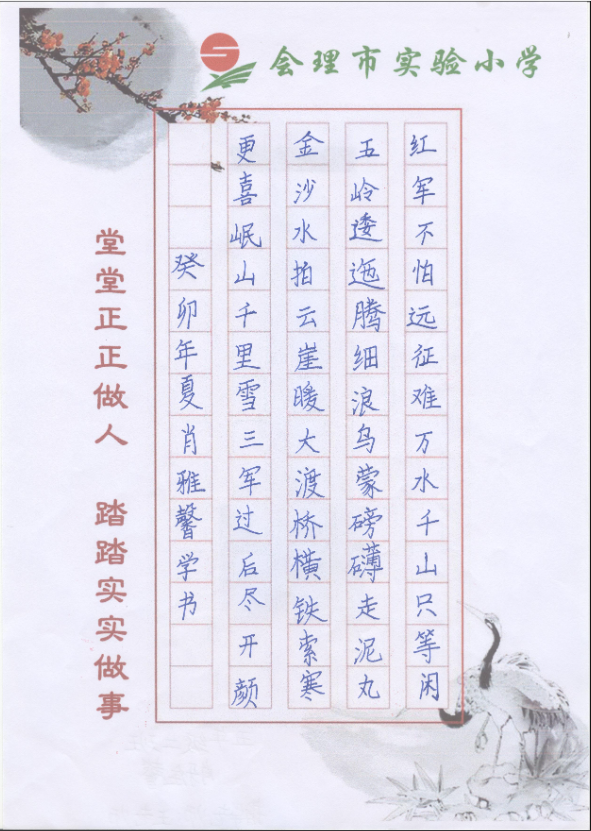 会理市实验小学
红军不怕远征难万水千山只等闲
五岭逶迤腾细浪乌蒙磅礴走泥丸
金沙水拍云崖暖大渡桥横铁索寒
更喜岷山千里雪三军过后尽开颜
癸卯年夏肖雅馨学书
堂堂正正做人 踏踏实实做事